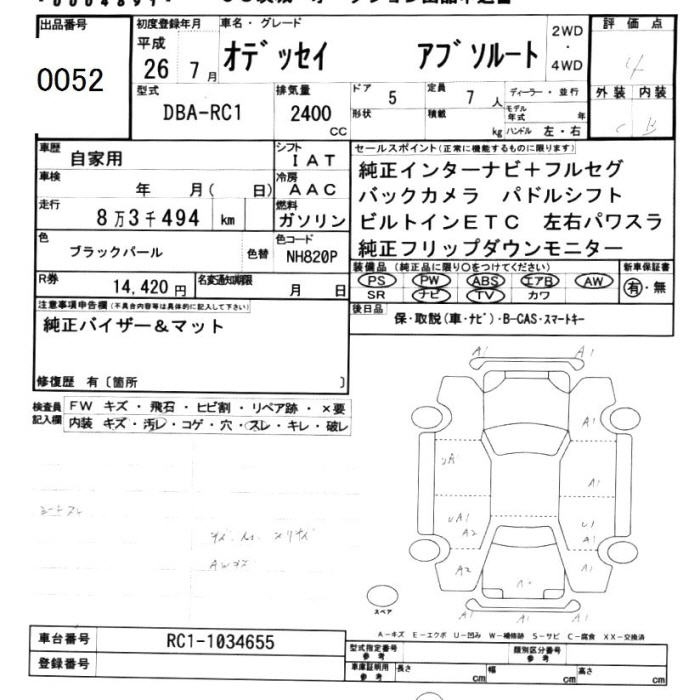 出品番号 初度登録年月 車名・グレード 評価点
0052 平成 26 7月 オデッセイ アブソルート 2WD・4WD 4
型式 DBA-RC1 排気量 2400 CC ドア 5 定員 7人 ディーラー・並行 外装 内装
形状 積載 kg モデル年式 年 ハンドル 左・右 C B
車歴 自家用 シフト IAT セールスポイント(正常に機能するものに限ります)
車検 年 月( 日) 冷房 AAC 純正インターナビ+フルセグ
走行 8万3千494 km 燃料 ガソリン バックカメラ パドルシフト
ビルトインETC 左右パワスラ
色 ブラックパール 色替 色コード NH820P 純正フリップダウンモニター
R券 14,420円 名変通知期限 月 日 装備品(純正品に限り○をつけてください) 新車保証書
PS PW ABS エアB AW 有・無
SR ナビ TV カワ
注意事項申告欄(不具合内容等は具体的に記入して下さい) 後日品 保・取説(車・ナビ)・B-CAS・スマートキー
純正バイザー&マット
修復歴 有〔箇所 〕
検査員記入欄 FW キズ・飛石・ヒビ割・リペア跡・×要
内装 キズ・汚レ・コゲ・穴・スレ・キレ・破レ
A1 A1
A1
A1
UA1 U1
A2 A1
A2 A1
A1 A1
スペア
A-キズ E-エクボ U-凹み W-補修跡 S-サビ C-腐食 XX-交換済
車台番号 RC1-1034655 型式指定番号 参考 類別区分番号 参考
登録番号 車庫証明用 参考 長さ cm 幅 cm 高さ cm